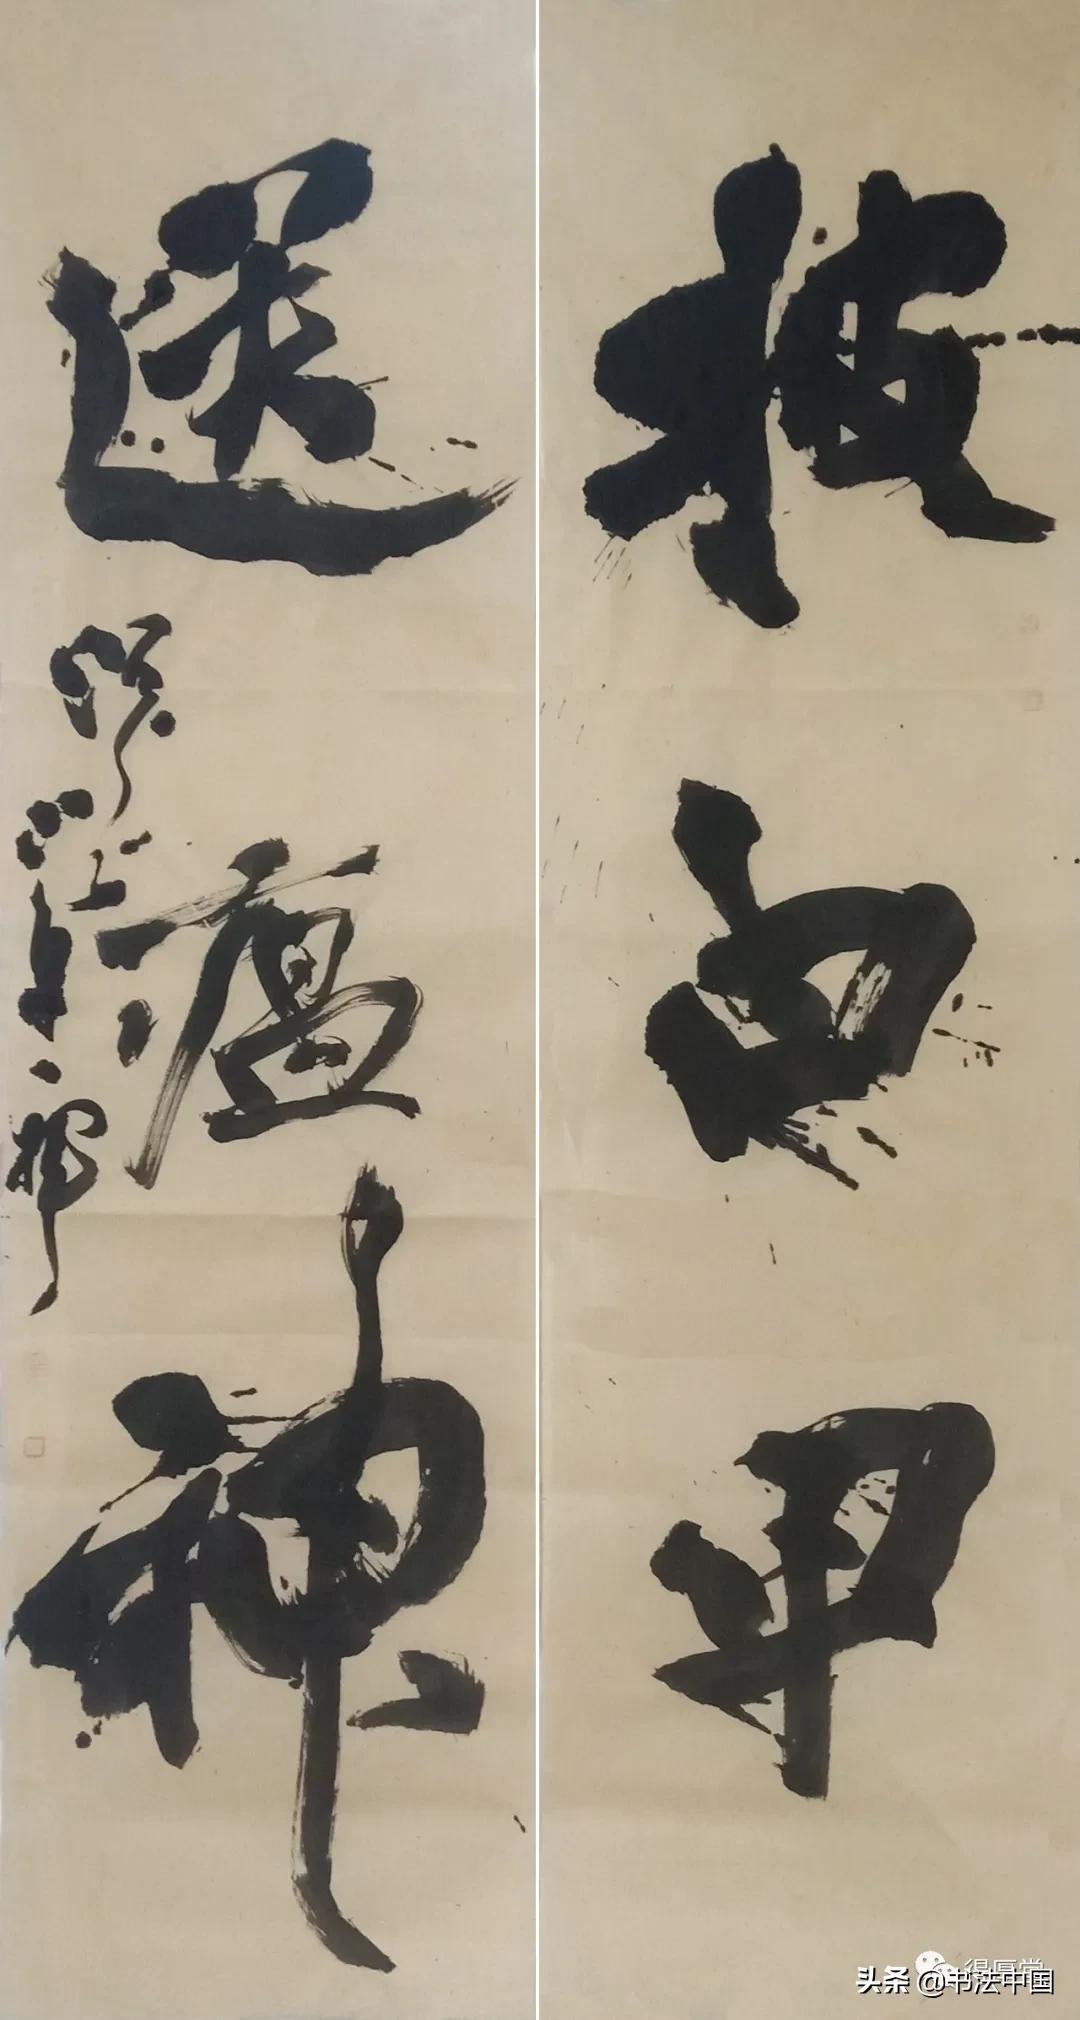 披白甲
送瘟神
得厚堂
头条 @书法中国